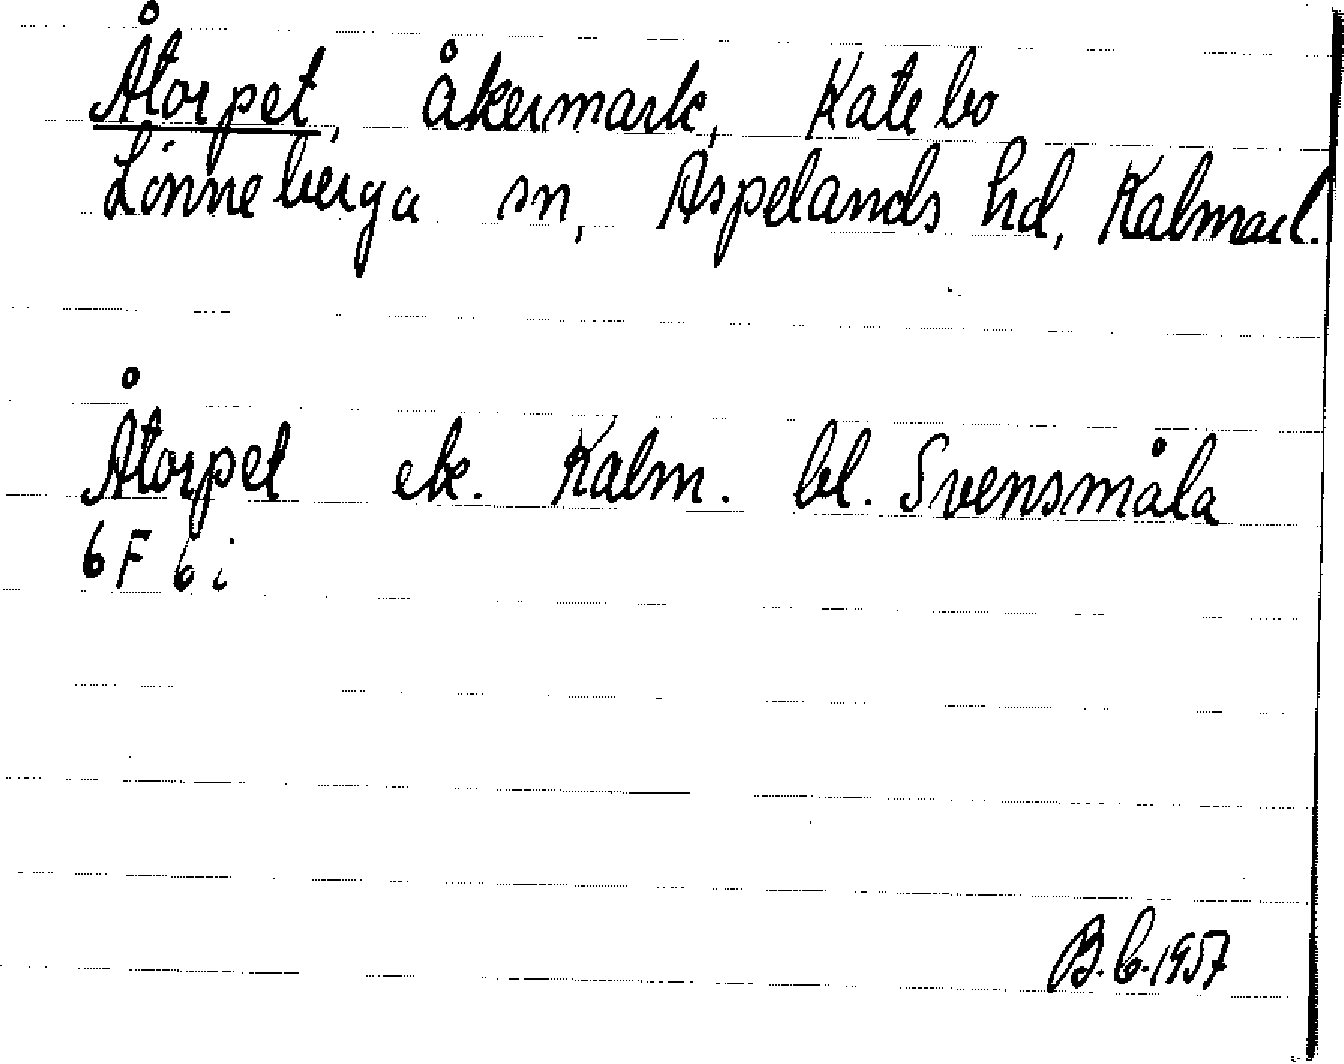 Åtorpet, åkermark, Katebo
Lönneberga sn, Aspelands hd, Kalmarl.
Åtorpet ek. Kalm. bl. Svensmåla
6 F 6 i
B.C.1957